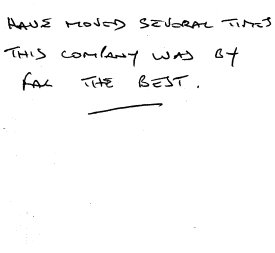 HAVE MOVED SEVERAL TIMES
THIS COMPANY WAS BY
FAR THE BEST.